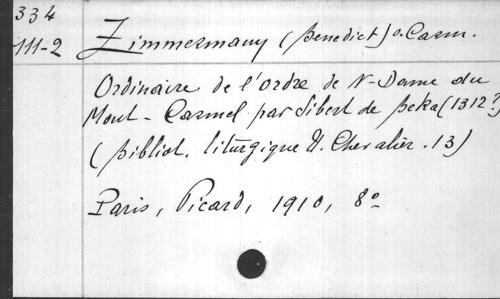 334
111-2
Zimmermann (Benedict) o. Carm.
Ordinaire de l'ordre de N-Dame du
Mont-Carmel par Sibert de Beka (1312?)
(Bibliot. liturgique U. Chevalier. 13)
Paris, Picard, 1910, 8º